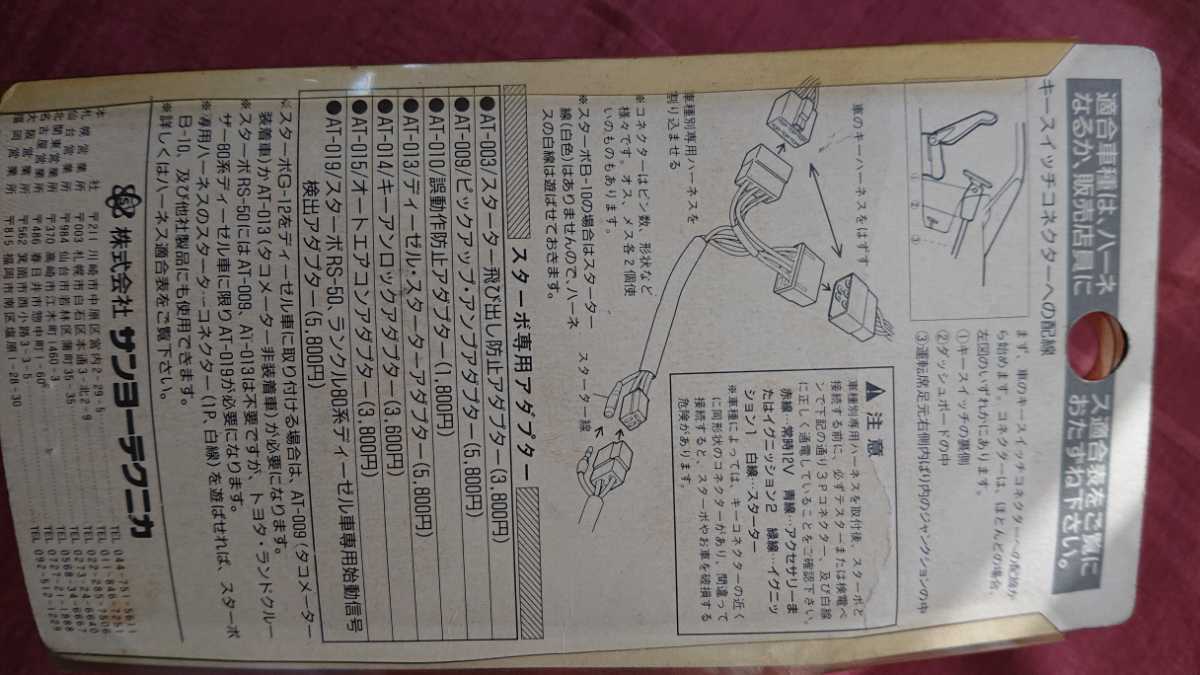 適合車種は、ハーネス適合表をご覧に
なるか、販売店員におたずね下さい。
キースイッチコネクターへの配線
まず、車のキースイッチコネクターへの配線か
ら始めます。コネクターは、ほとんどの場合、
左図のいずれかにあります。
①キースイッチの裏側
②ダッシュボードの中
③運転席足元右側内ばり内のジャンクションの中
①
②
③
車のキーハーネスをはずす
車種別専用ハーネスを
割り込ませる
※コネクターはピン数、形状など
様々です。オス、メス各2個使
いのものもあります。
※スターボB-10の場合はスターター
線(白色)はありませんので、ハーネ
スの白線は遊ばせておきます。
スターター線
注意
車種別専用ハーネスを取付後、スターボと
接続する前に、必ずテスターまたは検電ペ
ンで下記の通り3Pコネクター、及び白線
に正しく通電していることをご確認下さい。
赤線…常時12V 青線…アクセサリーま
たはイグニッション2 緑線…イグニッ
ション1 白線…スターター
※車種によっては、キーコネクターの近く
に同形状のコネクターがあり、間違って
接続すると、スターボやお車を破損する
危険があります。
スターボ専用アダプター
●AT-003/スターター飛び出し防止アダプター(3,800円)
●AT-009/ピックアップ・アンプアダプター(5,800円)
●AT-010/誤動作防止アダプター(1,800円)
●AT-013/ディーゼル・スターターアダプター(5,800円)
●AT-014/キーアンロックアダプター(3,600円)
●AT-015/オートエアコンアダプター(3,800円)
●AT-019/スターボRS-50、ランクル80系ディーゼル車専用始動信号
検出アダプター(5,800円)
※スターボG-12をディーゼル車に取り付ける場合は、AT-009(タコメーター
装着車)かAT-013(タコメーター非装着車)が必要になります。
※スターボRS-50にはAT-009、AT-013は不要ですが、トヨタ・ランドクルー
ザー80系ディーゼル車に限りAT-019が必要になります。
※専用ハーネスのスターターコネクター(1P、白線)を遊ばせれば、スターボ
B-10、及び他社製品にも使用できます。
※詳しくはハーネス適合表をご覧下さい。
株式会社サンヨーテクニカ
本社 〒211 川崎市中原区宮内2-29-5 TEL 044-751-5611
札幌営業所 〒003 札幌市白石区本通3-北2-9 TEL 011-846-7251
仙台営業所 〒984 仙台市若林区蒲町35-35 TEL 022-285-7506
北関東営業所 〒370 高崎市江木町1460-3 TEL 0273-24-6640
名古屋営業所 〒486 春日井市惣中町1-60 TEL 0568-34-6667
大阪営業所 〒562 箕面市西小路3-3-5 TEL 0727-21-1888
福岡営業所 〒815 福岡市南区塩原1-28-30 TEL 092-512-1229